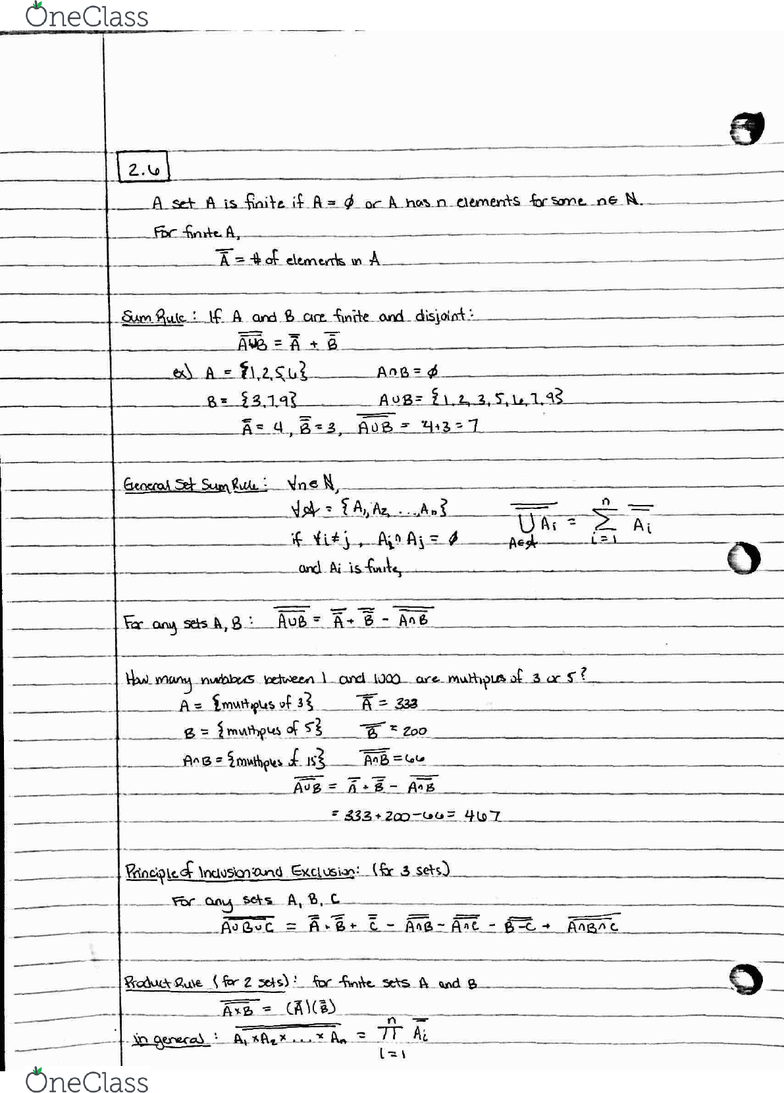 OneClass
2.6
A set A is finite if A = ∅ or A has n elements for some n∈ℕ.
For finite A,
A̿ = # of elements in A
Sum Rule: If A and B are finite and disjoint:
A∪B̿ = A̿ + B̿
ex) A = {1,2,5,6} A∩B = ∅
B = {3,7,9} A∪B = {1,2,3,5,6,7,9}
A̿ = 4, B̿ = 3, A∪B̿ = 4+3 = 7
General Set Sum Rule: ∀n∈ℕ,
∀𝒜 = {A₁, A₂, ..., Aₙ}
if ∀i≠j, Aᵢ∩Aⱼ = ∅
and Aᵢ is finite,
⋃ Aᵢ̿ = Σ Aᵢ̿
A∈𝒜 i=1 n
For any sets A, B: A∪B̿ = A̿ + B̿ − A∩B̿
How many numbers between 1 and 1000 are multiples of 3 or 5?
A = {multiples of 3} A̿ = 333
B = {multiples of 5} B̿ = 200
A∩B = {multiples of 15} A∩B̿ = 66
A∪B̿ = A̿ + B̿ − A∩B̿
= 333+200−66 = 467
Principle of Inclusion and Exclusion: (for 3 sets)
For any sets A, B, C
A∪B∪C̿ = A̿ + B̿ + C̿ − A∩B̿ − A∩C̿ − B−C̿ + A∩B∩C̿
Product Rule (for 2 sets): for finite sets A and B
A×B̿ = (A̿)(B̿)
in general: A₁×A₂×...×Aₙ̿ = ∏ Aᵢ̿
n
i=1
OneClass